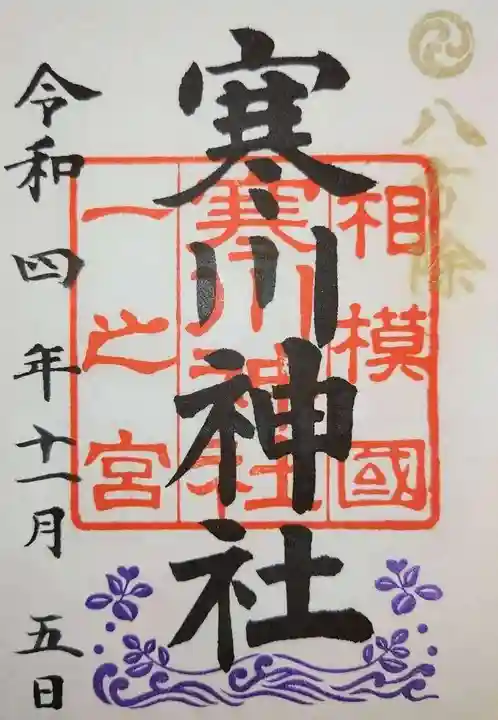 八方除
相模國
寒川神社
一之宮
寒川神社
令和四年十一月五日